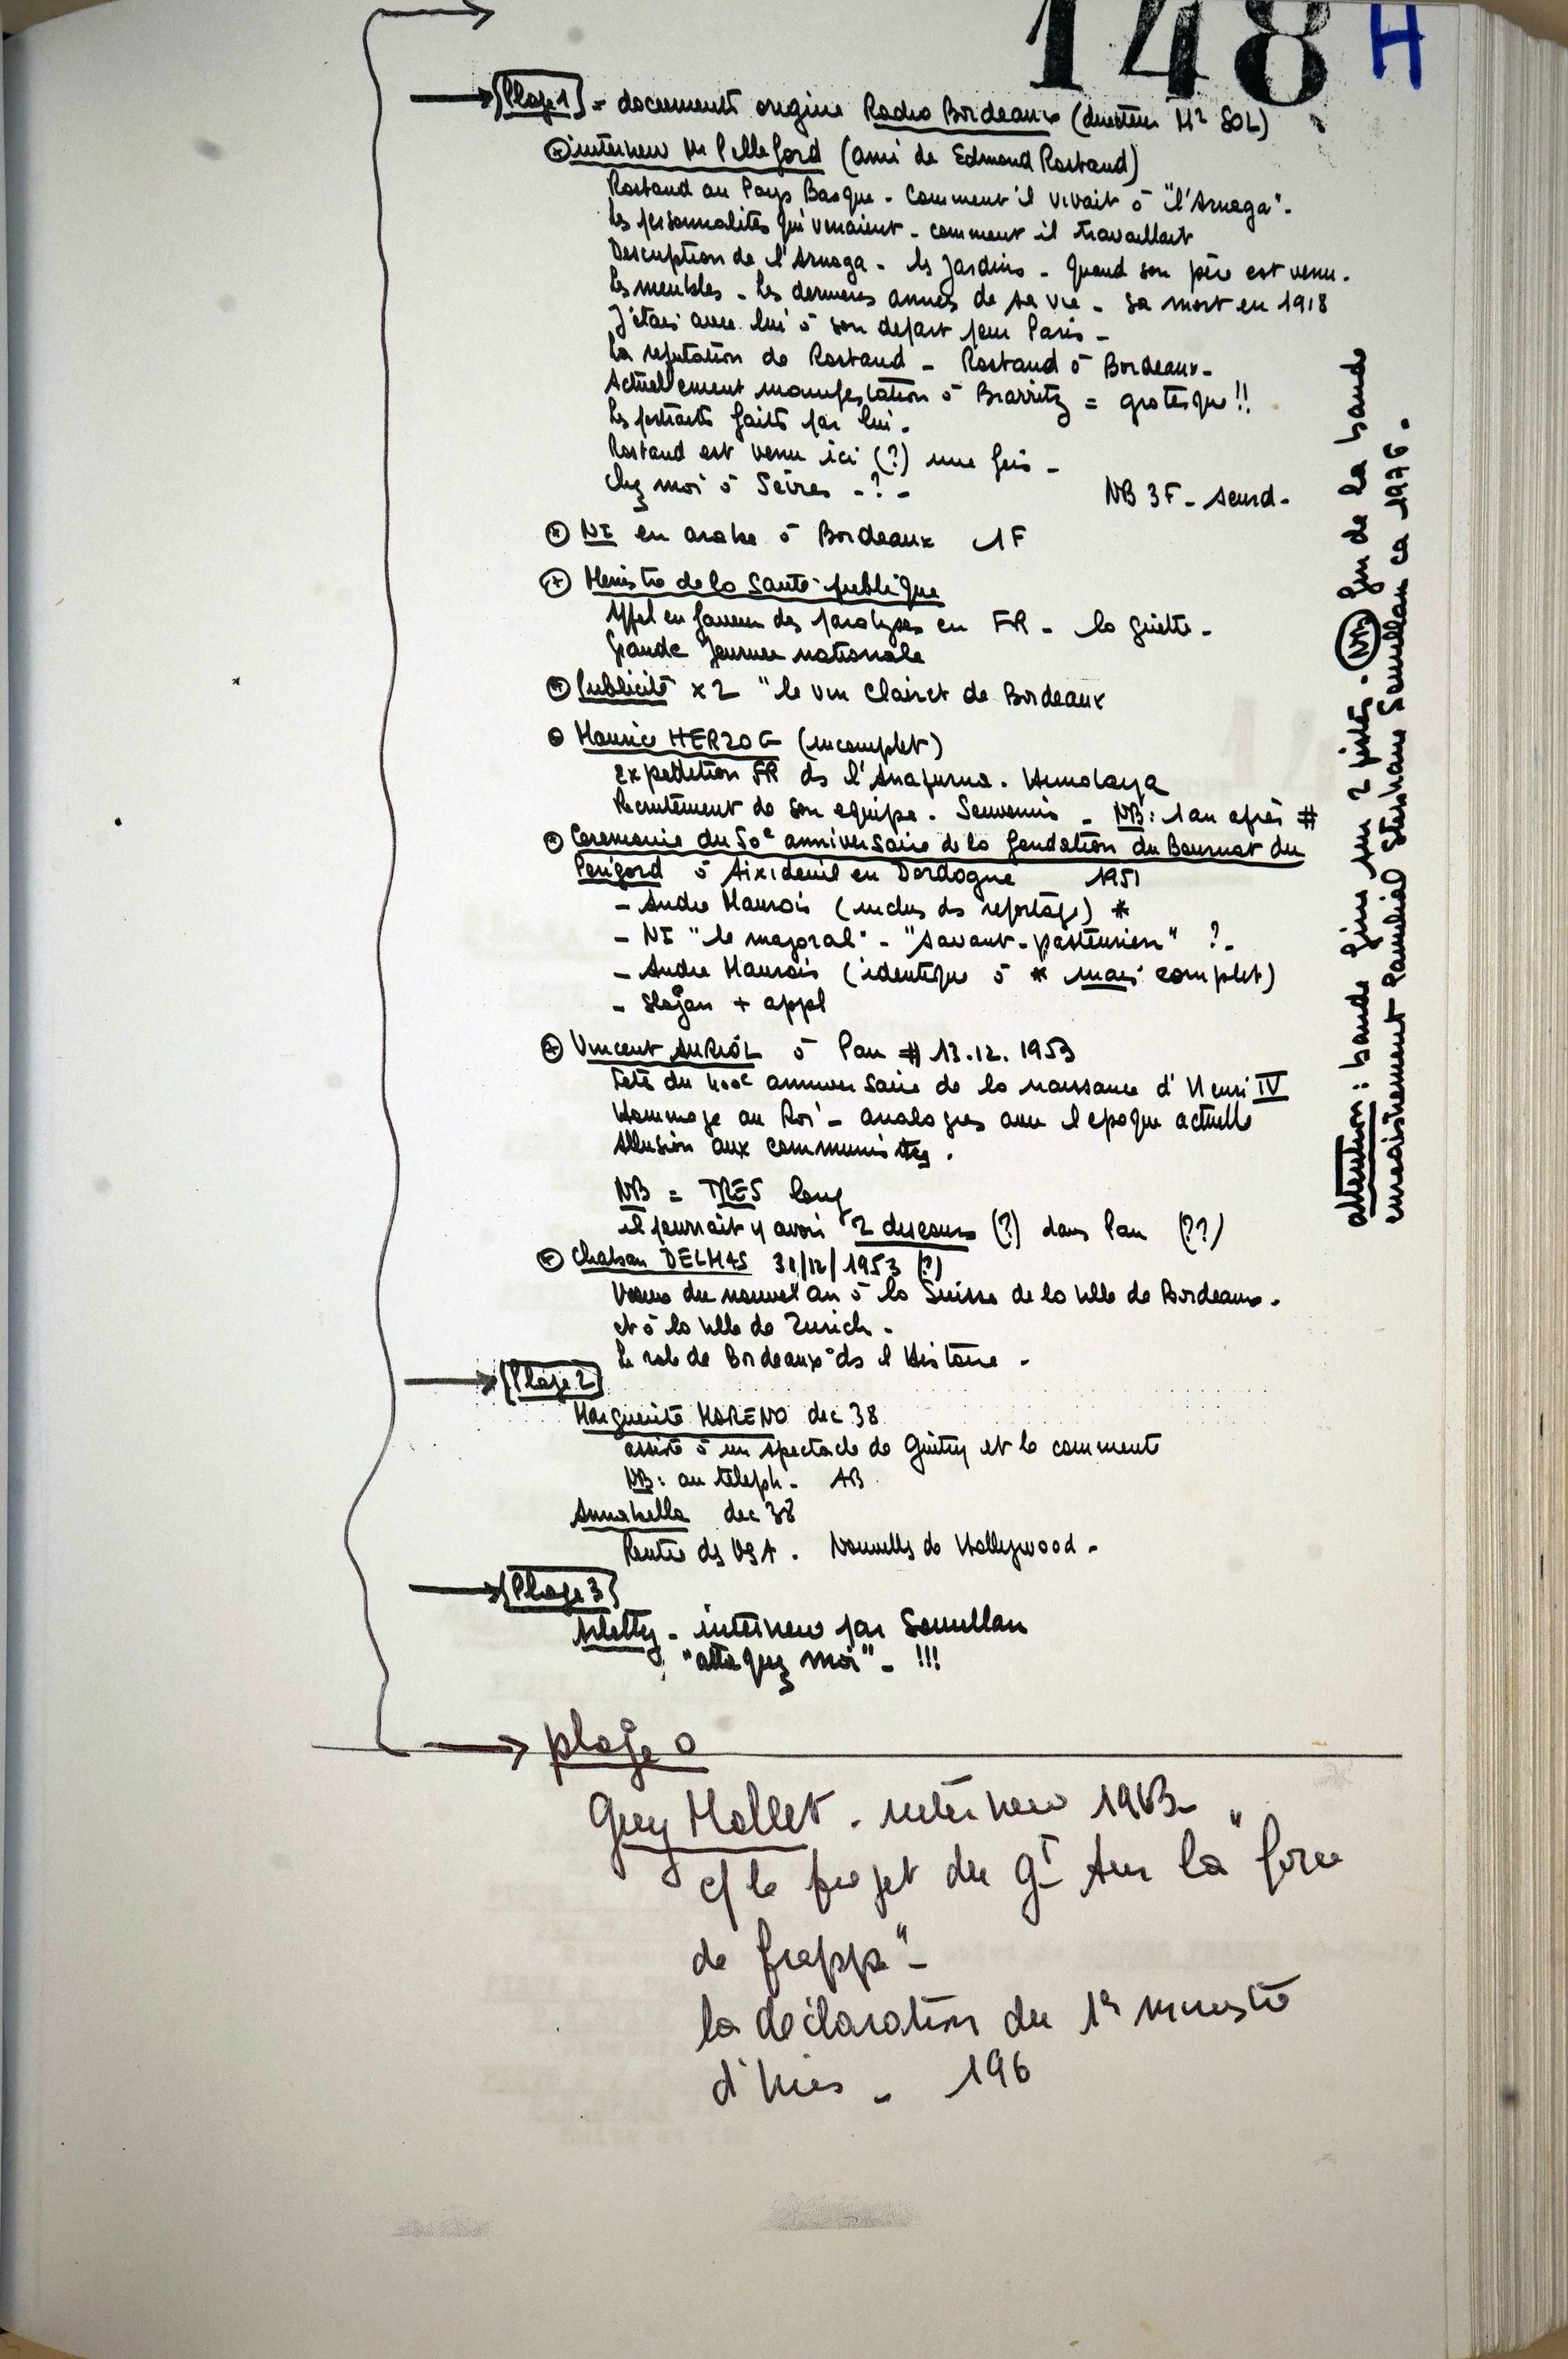 148 H
Plage 1 = documents origine Radio Bordeaux (directeur Mr SOL)
interview Mr Pelleford (ami de Edmond Rostand)
Rostand au Pays Basque - Comment il vivait à "l'Arnaga".
les personnalités qui venaient - comment il travaillait
Description de l'Arnaga - les Jardins - Quand son père est venu.
les meubles - les dernieres années de sa vie - sa mort en 1918
J'étais avec lui à son depart pour Paris -
la reputation de Rostand - Rostand à Bordeaux -
Actuellement manifestation à Biarritz = grotesque !!
les portraits faits par lui.
Rostand est venu ici (?) une fois -
Chez moi à Sèvres - ? -
NB 3F - sourd -
NI en arabe à Bordeaux 1F
Ministre de la Santé publique
Appel en faveur des paralysés en FR -
Grande Journee nationale
Publicité x 2 "le vin Clairet de Bordeaux
Maurice HERZOG (incomplet)
expedition FR ds l'Anapurna. Himalaya
Recrutement de son equipe. Souvenirs - NB : 1 an après #
Ceremonie du 50e anniversaire de la fondation du Bournat du
Perigord à Aixideuil en Dordogne 1951
- Andre Maurois (inclus ds reportage) *
- NI "le majoral" - "savant-pasteurien" ? -
- Andre Maurois (identique à * mais complet)
- slogan + appl
Vincent AURIOL à Pau # 13.12.1953
Fete du 400e anniversaire de la naissance d'Henri IV
Hommage au Roi - analogies avec l'epoque actuelle
Allusion aux communistes.
NB = TRES long
il pourrait y avoir 2 discours (?) dans Pau (??)
Chaban DELMAS 31/12/1953 (?)
Voeux du nouvel an à la Suisse de la ville de Bordeaux -
et à la ville de Zurich -
le role de Bordeaux ds l'Histoire -
Plage 2
Marguerite MORENO dec 38
assiste à un spectacle de Guitry et le commente
NB : au téleph. - AB
Annabella dec 38
Rentre ds USA. Nouvelles de Hollywood -
Plage 3
Arletty - interview par
"attaquez moi" - !!!
plage 0
Guy Mollet - interview 1963 -
c/ le projet du Gt sur la "force
de frappe" -
la déclaration du 1er ministre
d'hier - 196
attention : bande 2 pistes. NB fin de la bande
enregistrement familial Stephane ca 1976.